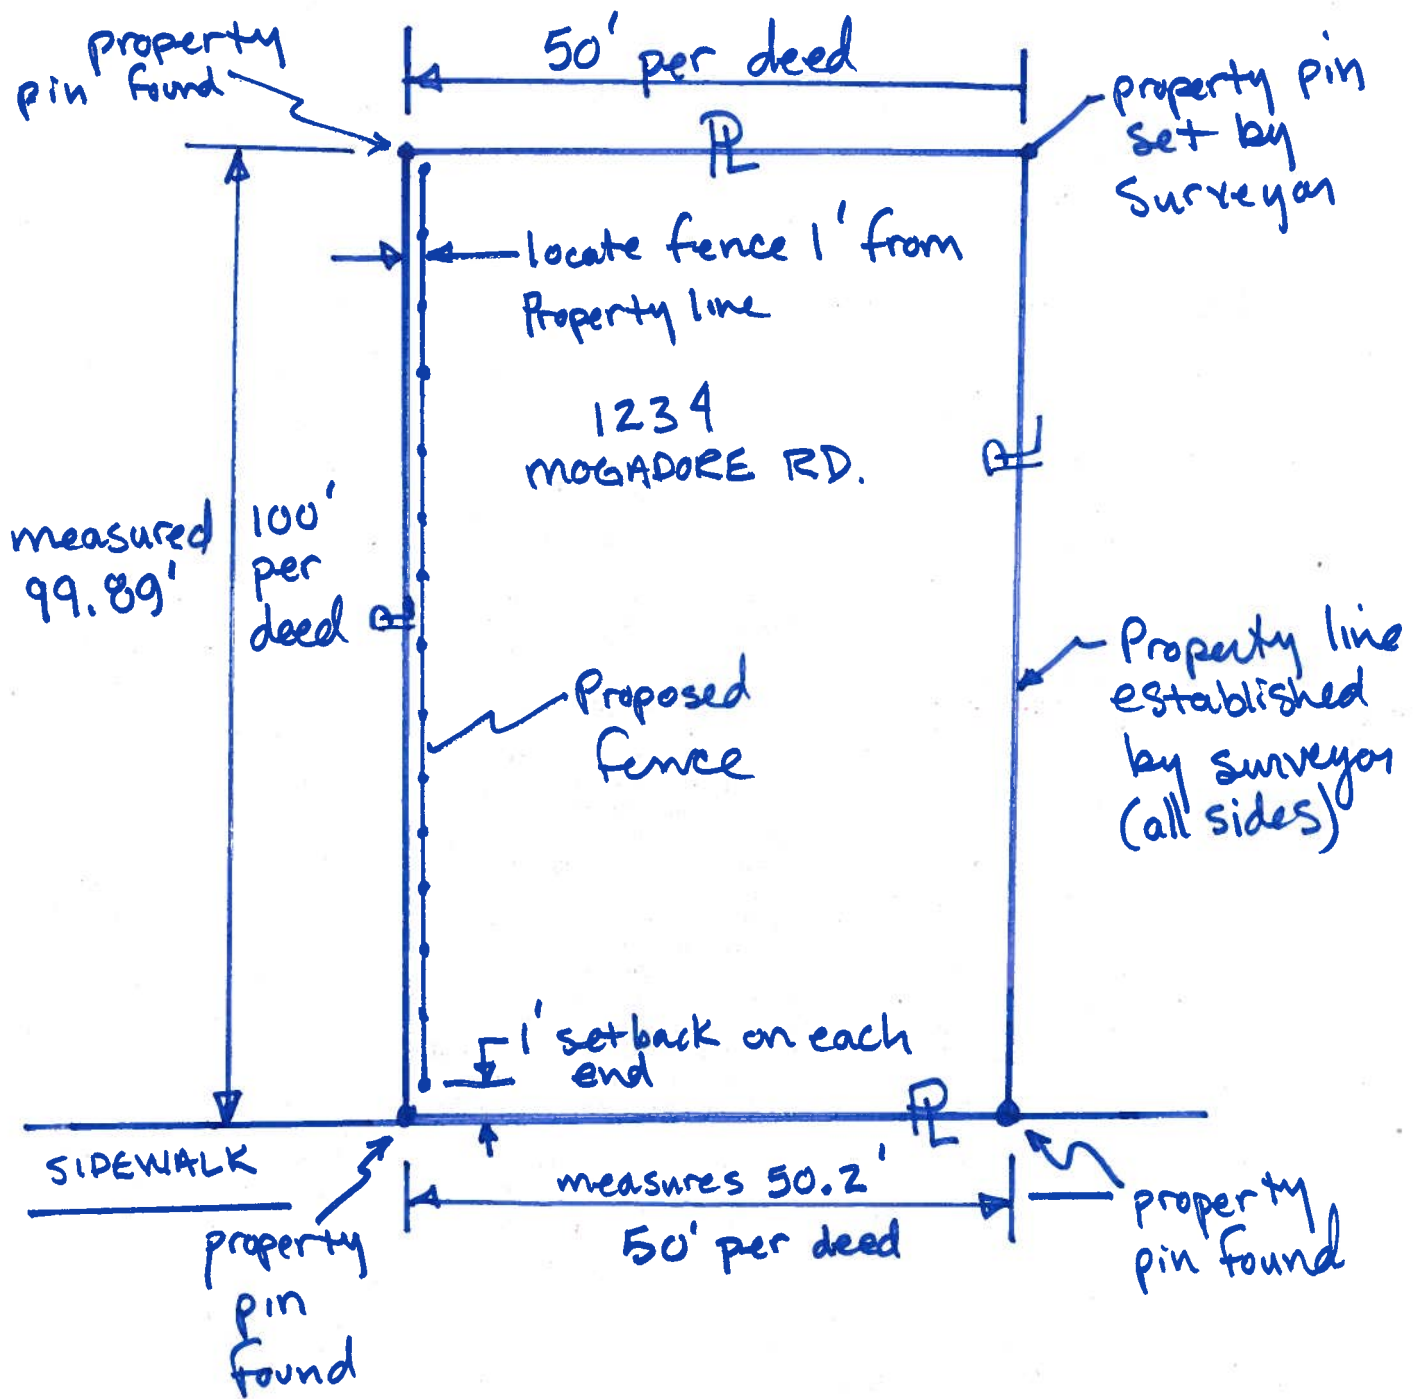 property
pin found
50' per deed
property pin
set by
Surveyor
PL
locate fence 1' from
Property line
1234
MOGADORE RD.
PL
measured
99.89'
100'
per
deed
PL
Proposed
fence
Property line
established
by surveyor
(all sides)
1' setback on each
end
PL
SIDEWALK
measures 50.2'
50' per deed
property
pin
found
property
pin found